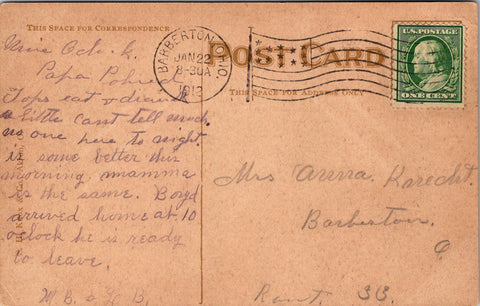 THIS SPACE FOR CORRESPONDENCE
Papa
Tops eat & drank
a little can't tell much
no one here to night
is some better this
morning, mamma
is the same. Boyd
arrived home at 10
oclock he is ready
to leave.
M B & L B
BARBERTON, O.
JAN 22
8-30A
1913
POST CARD
THIS SPACE FOR ADDRESS ONLY
U.S. POSTAGE
ONE CENT
Mrs Anna Karecht.
Barberton
O
Rout. 33.